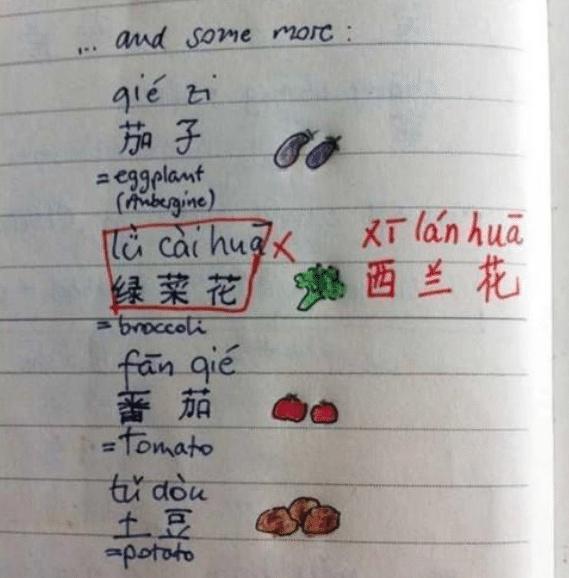 ... and some more:
qié zi
茄子
= eggplant
(Aubergine)
lǜ cài huā x xī lán huā
绿菜花 西兰花
= broccoli
fān qié
番茄
= tomato
tǔ dòu
土豆
= potato